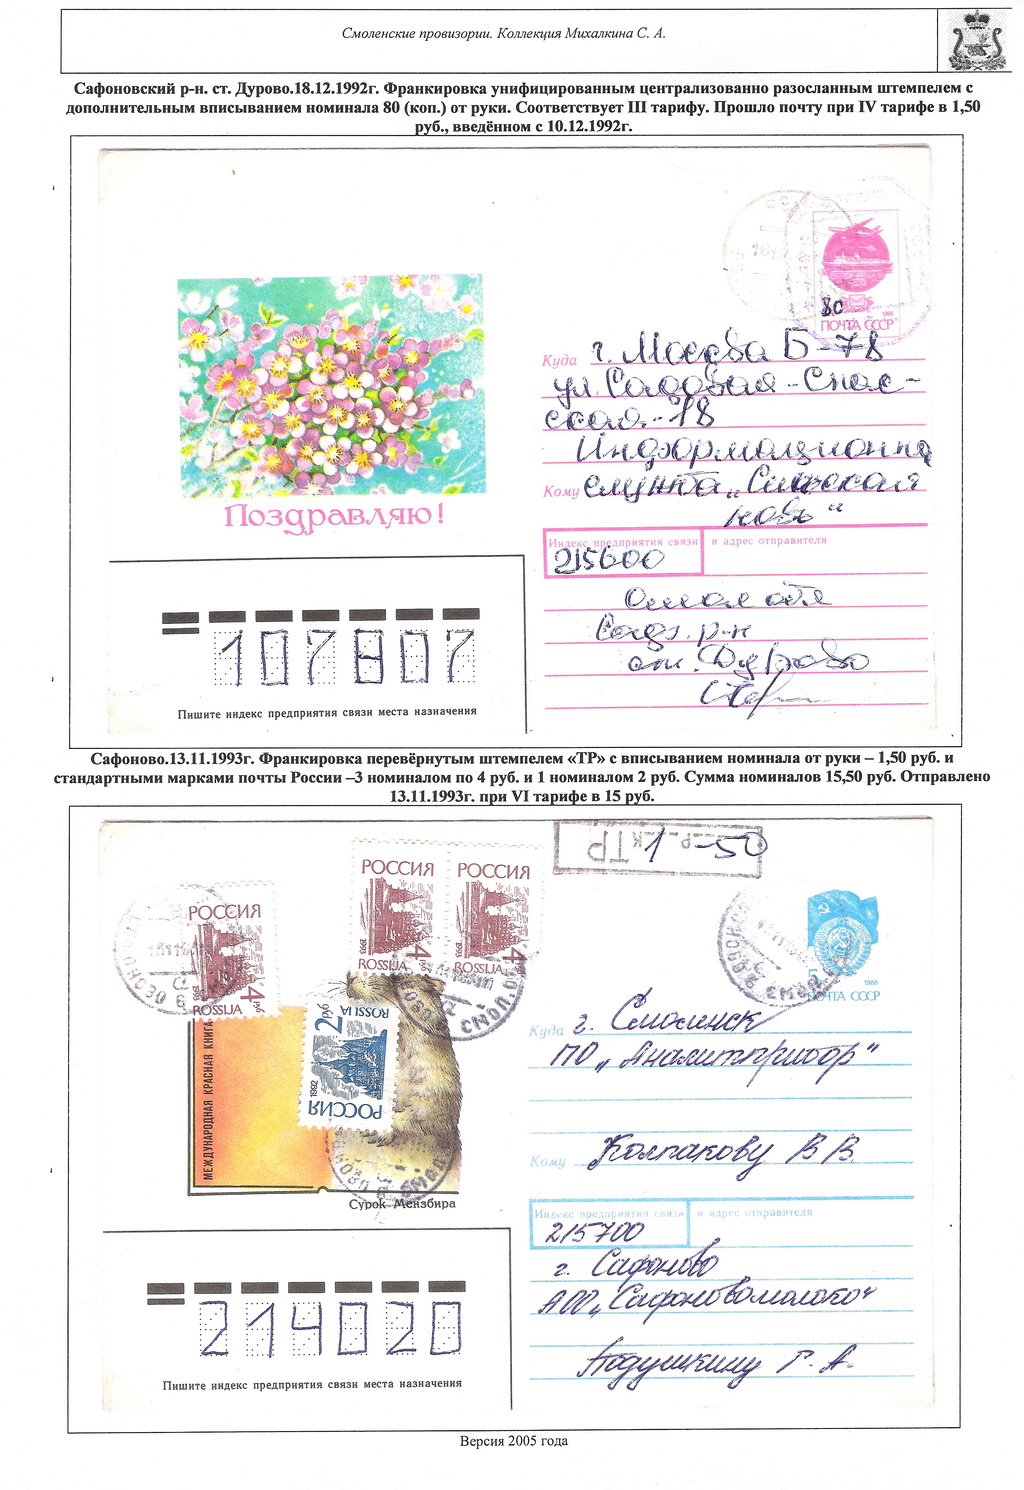 Смоленские провизории. Коллекция Михалкина С. А.
Сафоновский р-н. ст. Дурово.18.12.1992г. Франкировка унифицированным централизованно разосланным штемпелем с
дополнительным вписыванием номинала 80 (коп.) от руки. Соответствует III тарифу. Прошло почту при IV тарифе в 1,50
руб., введённом с 10.12.1992г.
80
1988
ПОЧТА СССР
Поздравляю!
Куда г. Москва Б-78
ул. Садовая-Спас-
ская-18
Информационна
Кому служба „Сельская
новь“
Индекс предприятия связи и адрес отправителя
215600
Смол обл
Саф. р-н
ст. Дурово
107807
Пишите индекс предприятия связи места назначения
Сафоново.13.11.1993г. Франкировка перевёрнутым штемпелем «ТР» с вписыванием номинала от руки – 1,50 руб. и
стандартными марками почты России –3 номиналом по 4 руб. и 1 номиналом 2 руб. Сумма номиналов 15,50 руб. Отправлено
13.11.1993г. при VI тарифе в 15 руб.
ТР Р К 1-50
РОССИЯ 4 руб ROSSIJA 1993
РОССИЯ 4 ROSSIJA 1993
РОССИЯ 4 ROSSIJA
РОССИЯ 2 руб ROSSIJA 1992
МЕЖДУНАРОДНАЯ КРАСНАЯ КНИГА
Сурок Мензбира
5
1988
ПОЧТА СССР
Куда г. Смоленск
ПО „Аналитприбор“
Кому Колпакову В В.
Индекс предприятия связи и адрес отправителя
215700
г. Сафоново
АОО„Сафоновомолоко“
Подушкину Г. А.
214020
Пишите индекс предприятия связи места назначения
Версия 2005 года